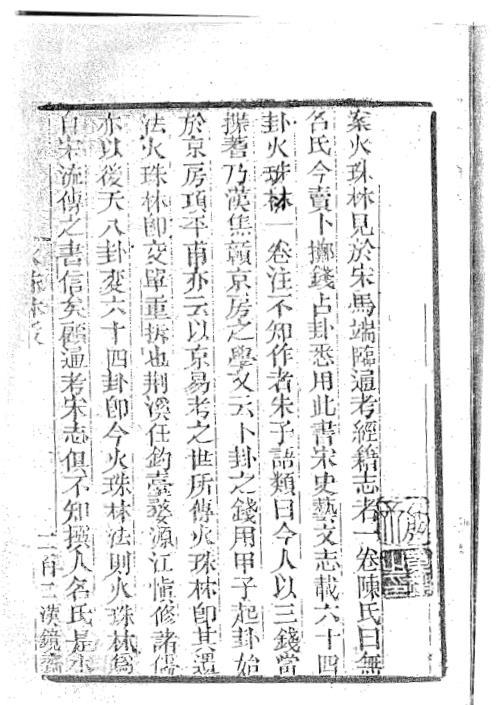 案火珠林見於宋馬端臨通考經籍志者一卷陳氏曰無
名氏今賣卜擲錢占卦悉用此書宋史藝文志載六十四
卦火珠林一卷注不知作者朱子語類曰今人以三錢當
揲蓍乃漢焦贛京房之學又云卜卦之錢用甲子起卦始
於京房項平甫亦云以京易考之世所傳火珠林即其遺
法火珠林即交單重拆也荆溪任釣臺婺源江愼修諸儒
亦以後天八卦変六十四卦卽今火珠林法則火珠林爲
自宋流傳之書信矣顧通考宋志俱不知撰人名氏是本
火珠林
二百二漢鏡齋